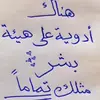 هناك
أدوية على هيئة
بشر
مثلك تماماً